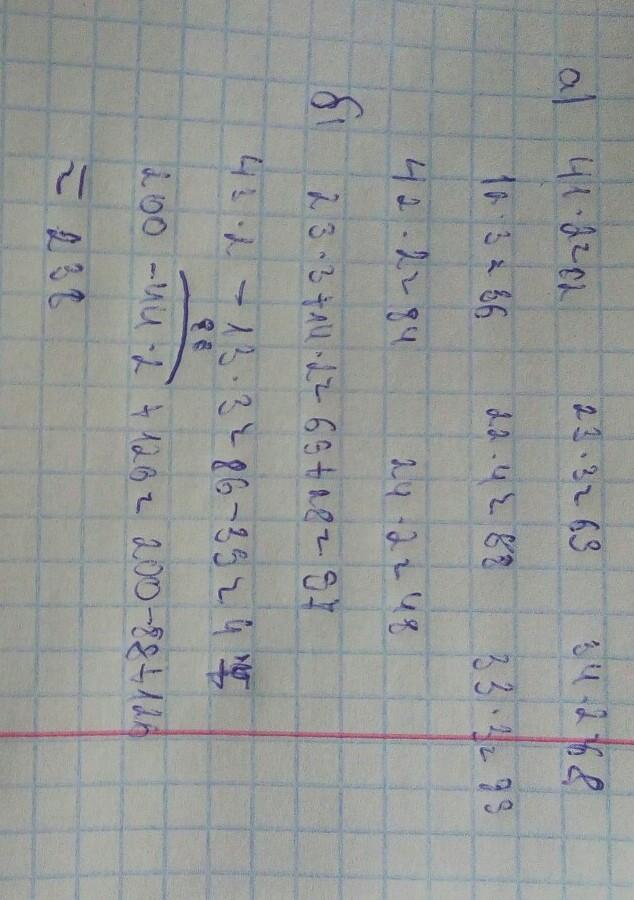 а) 41·2=82 23·3=69 34·2=68
12·3=36 22·4=88 33·3=99
42·2=84 24·2=48
б) 23·3+14·2=69+28=97
43·2-13·3=86-39=47
88
200-44·2+126=200-88+126
=238